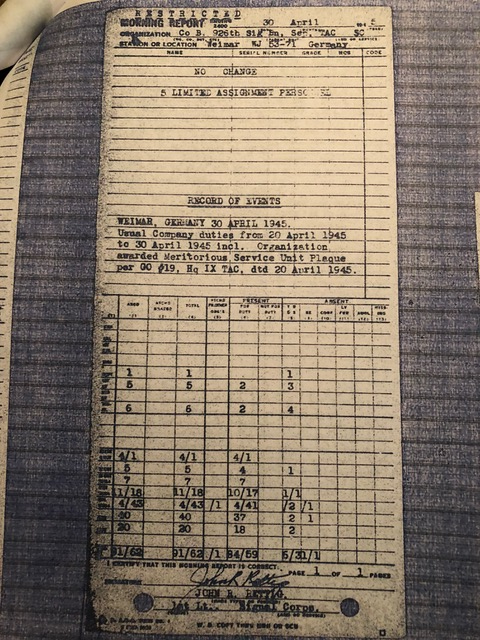 RESTRICTED
MORNING REPORT 30 April 194 5
ORGANIZATION Co B, 926th Sig Bn, Sep, TAC SC
STATION OR LOCATION Weimar WJ 53-71 Germany
NAME SERIAL NUMBER GRADE MOS CODE
NO CHANGE
5 LIMITED ASSIGNMENT
RECORD OF EVENTS
WEIMAR, GERMANY 30 APRIL 1945.
Usual Company duties from 20 April 1945
to 30 April 1945 incl. Organization
awarded Meritorious Service Unit Plaque
per GO #19, Hq IX TAC, dtd 20 April 1945.
PRESENT ABSENT
TOTAL FOR DUTY
1 1 1
5 5 2 3
6 6 2 4
4/1 4/1 4/1
5 5 4 1
7 7 7
11/18 11/18 10/17 1/1
4/43 4/43 /1 4/41 /2 /1
40 40 37 2 1
20 20 18 2
91/62 91/62 /1 84/59 /1
I CERTIFY THAT THIS MORNING REPORT IS CORRECT. PAGE 1 OF 1 PAGES
SIGNATURE
JOHN R. RETTIG,
1st Lt., Signal Corps.